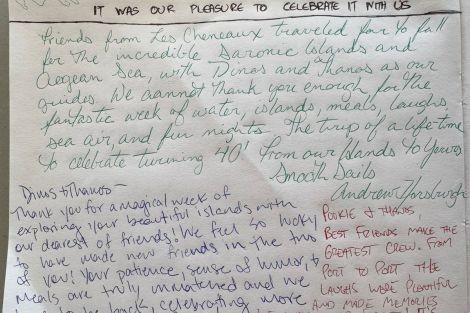 IT WAS OUR PLEASURE TO CELEBRATE IT WITH US
Friends from Les Cheneaux traveled far to fall
for the incredible Saronic Islands and
Aegean Sea, with Dinos and Thanos as our
guides. We cannot thank you enough for the
fantastic week of water, islands, meals, laughs,
sea air, and fun nights. The trip of a life-time
to celebrate turning 40! From our Islands to Yours
Smooth Sails
Dinos + Thanos -
Thank you for a magical week of
exploring your beautiful islands with
our dearest of friends! We feel so lucky
to have made new friends in the two
of you! Your patience, sense of humor, +
meals are truly unmatched and we
back, celebrating more
& THANOS
BEST FRIENDS MAKE THE
GREATEST CREW. FROM
PORT TO PORT THE
LAUGHS WERE PLENTIFUL
AND MADE MEMORIES